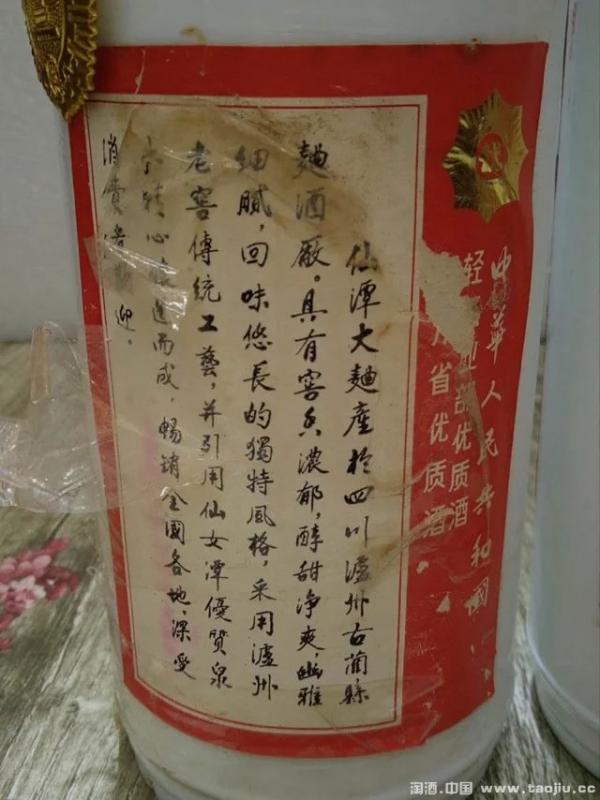 中華人民共和國
轻业部优质酒
省优质酒
仙潭大麯產於四川瀘州古藺縣
麯酒厰。具有窖香濃郁，醇甜净爽，幽雅
细腻，回味悠長的獨特風格，采用瀘州
老窖傳統工藝，并引用仙女潭優質泉
水精心釀造而成，暢銷全國各地，深受
消費者迎。
淘酒.中国 www.taojiu.cc